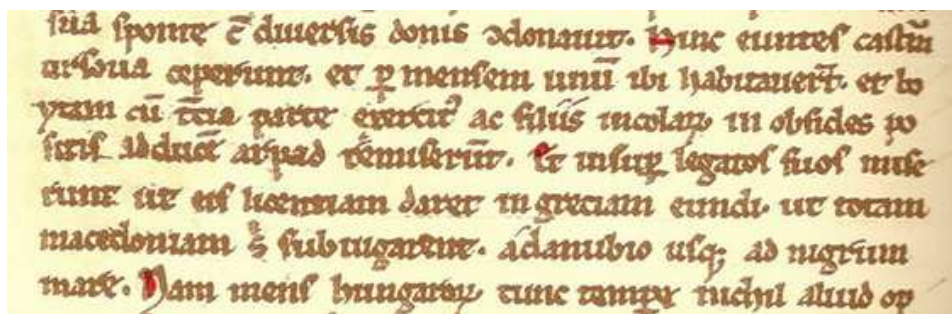 sua sponte c̄ diuersis donis ꝯdonauit. Hinc euntes castrū
ursoua ceperunt. et ꝑ mensem unū ibi habitauer̄t. et bo
ytam cū t̄cia parte exercit᷒ ac filiis incolaꝝ in obsides po
sitis ad ducē arpad remiserūt. Et insuꝑ legatos suos mise
runt ut eis licentiam daret in greciam eundi. ut totam
macedoniam s̄ subiugarent. a danubio usqꝫ ad nigrum
mare. Nam mens hungaroꝝ tunc tempoꝝ nichil aliud op